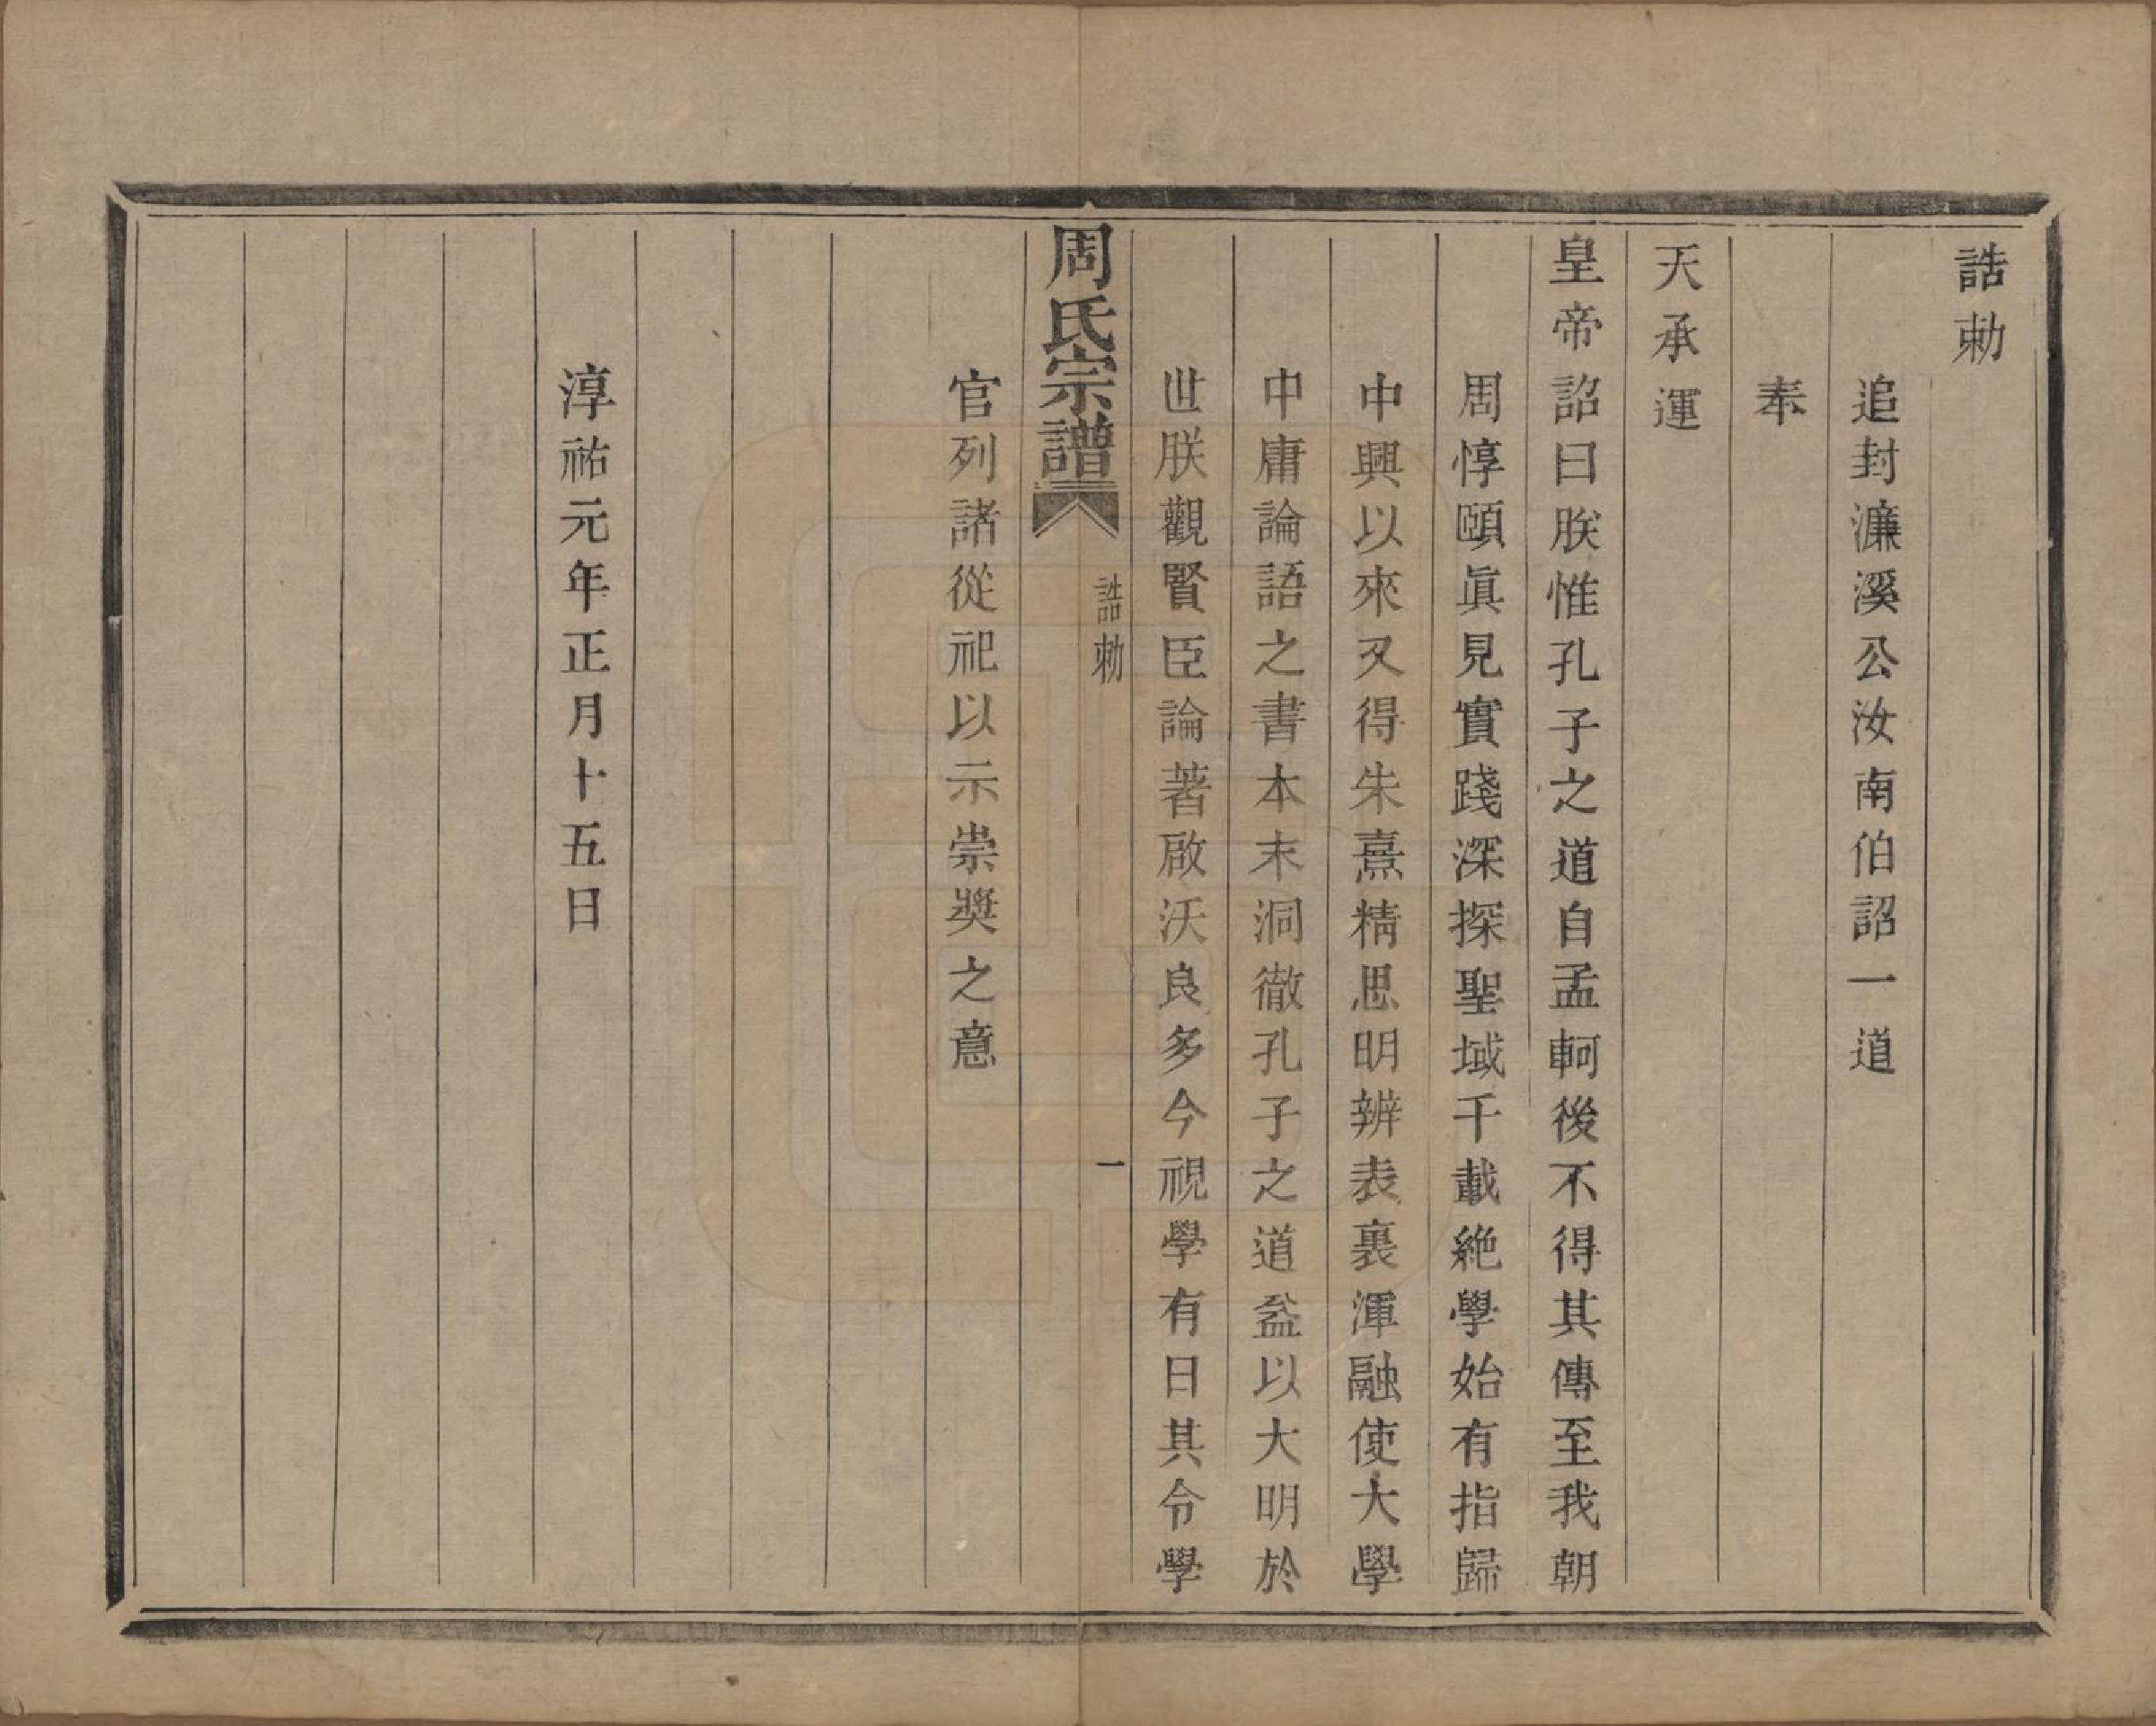 誥勅
追封濂溪公汝南伯詔一道
奉
天承運
皇帝詔曰朕惟孔子之道自孟軻後不得其傳至我朝
周惇頤眞見實踐深探聖域千載絶學始有指歸
中興以來又得朱熹精思明辨表裏渾融使大學
中庸論語之書本末洞徹孔子之道益以大明於
世朕觀賢臣論著啟沃良多今視學有日其令學
周氏宗譜
誥勅
一
官列諸從祀以示崇奬之意
淳祐元年正月十五日